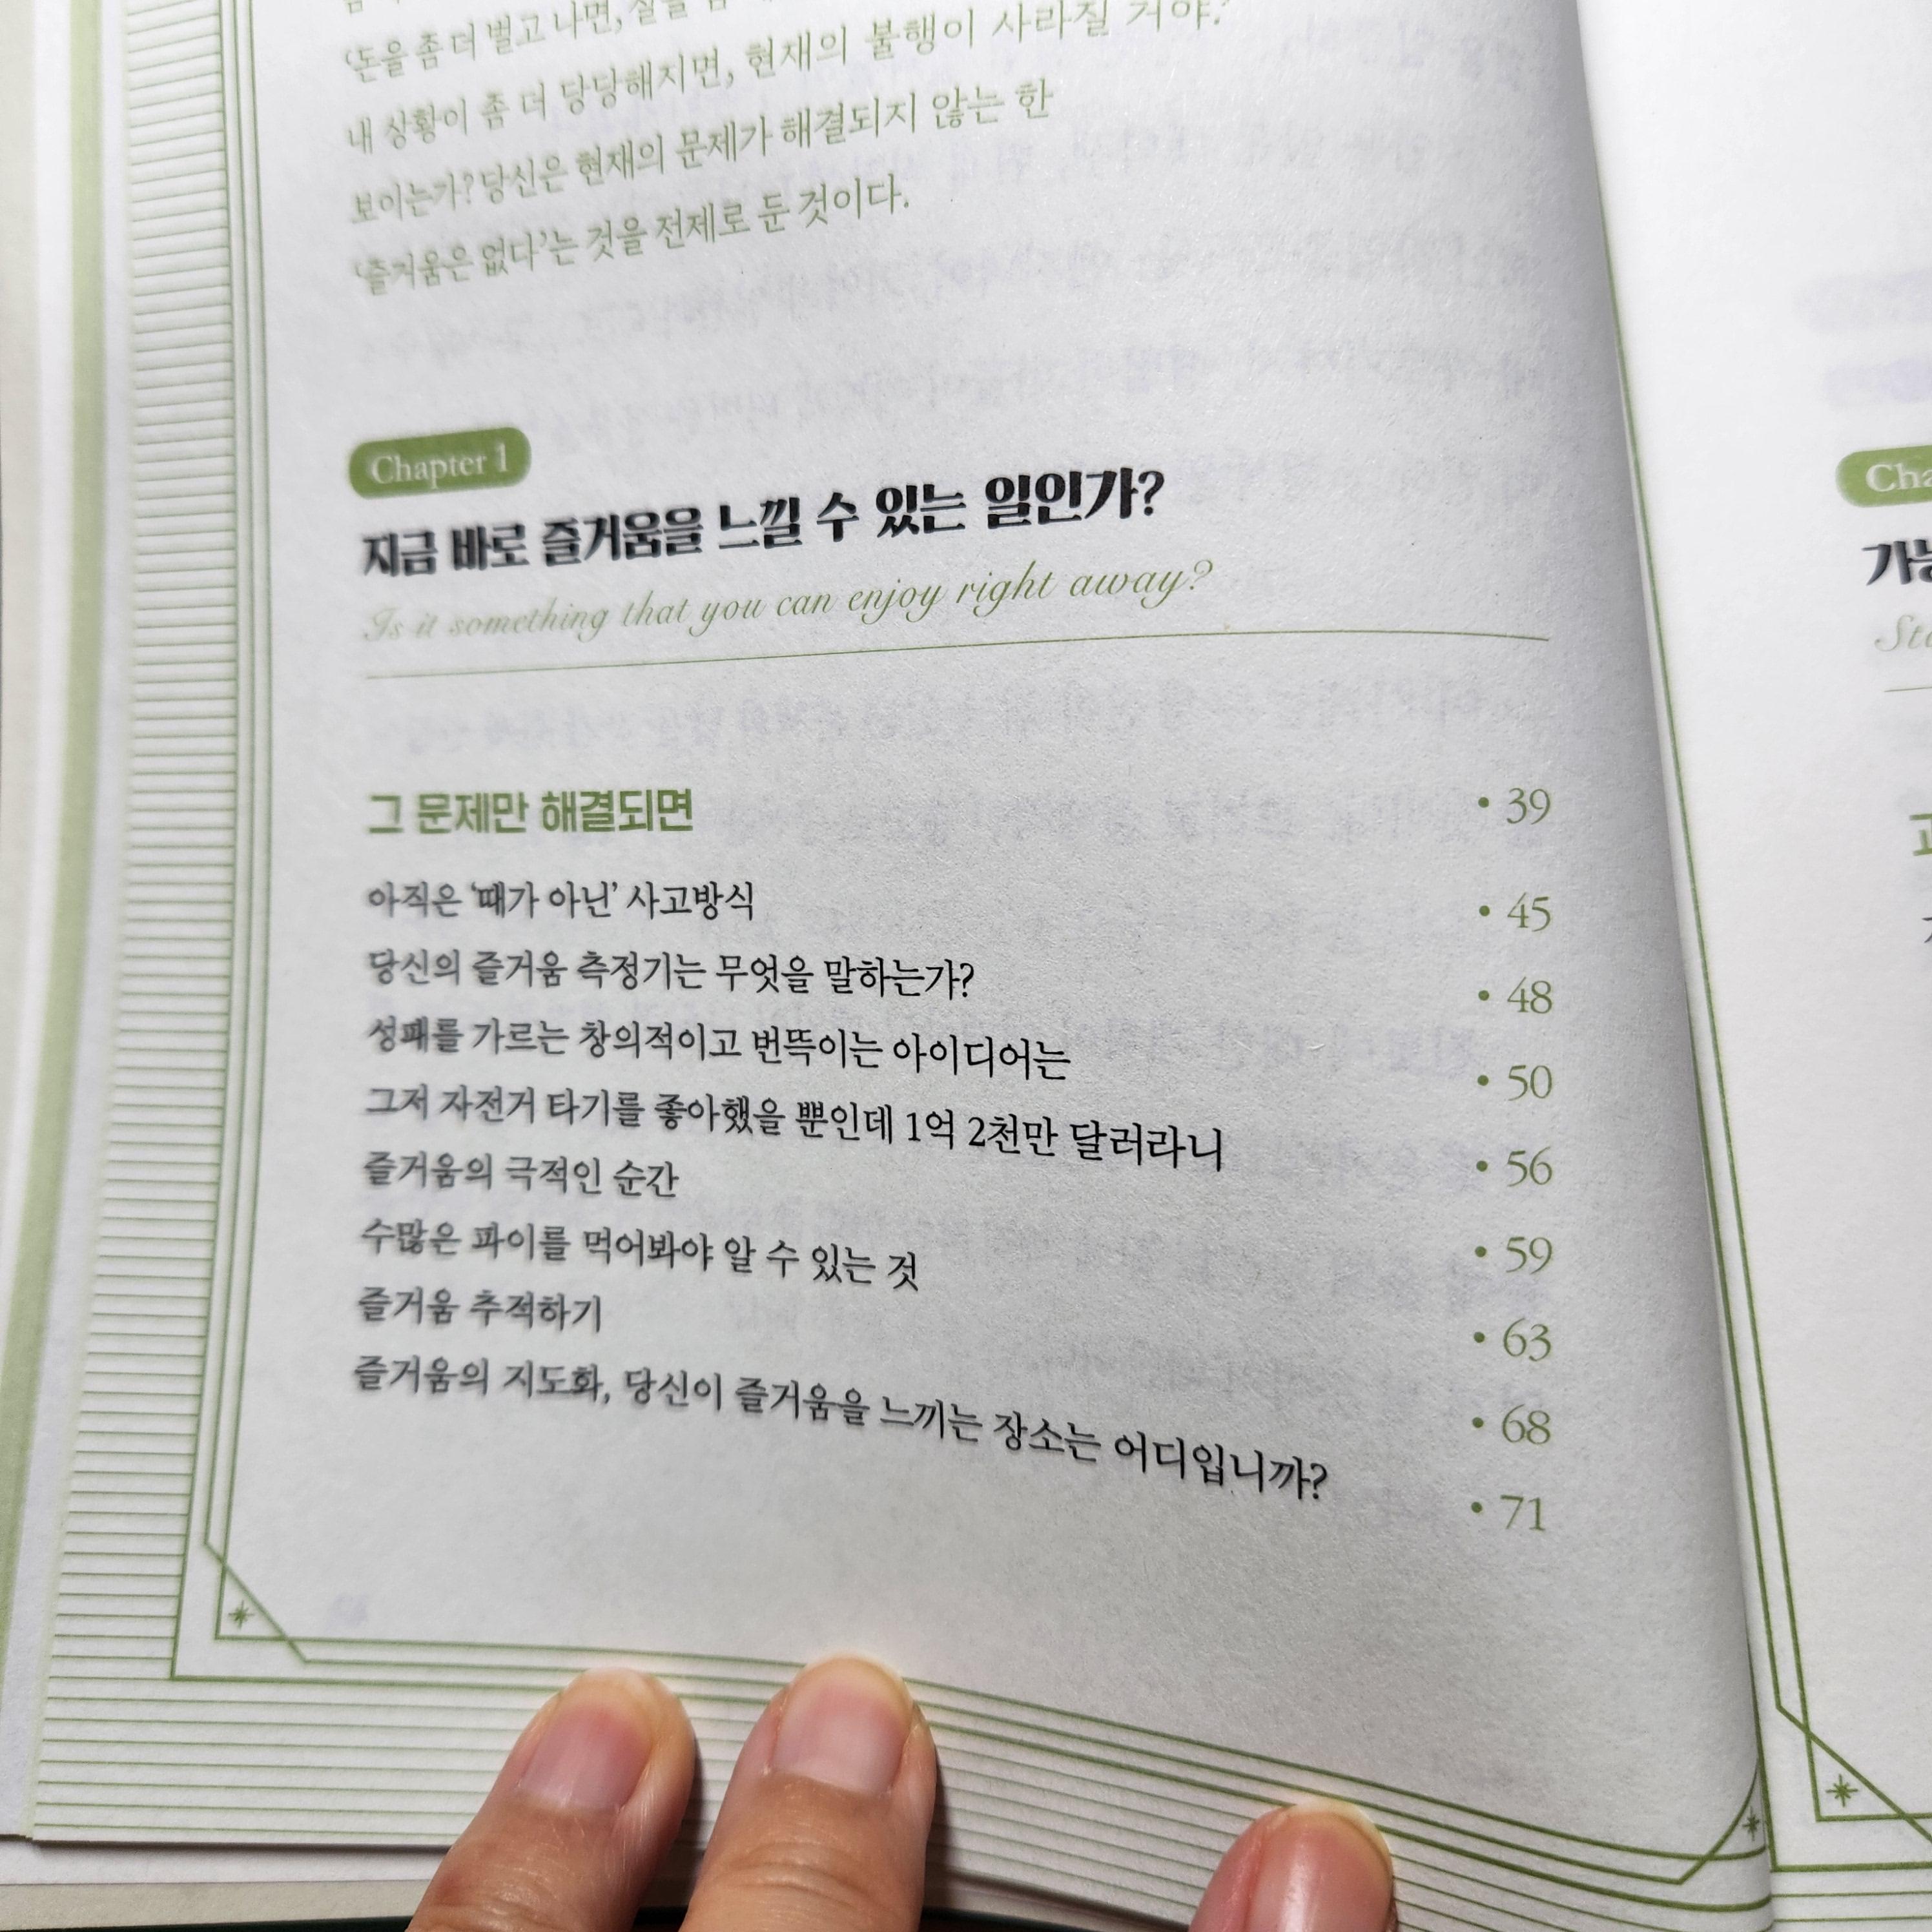 '돈을 좀 더 벌고 나면,
내 상황이 좀 더 당당해지면, 현재의 불행이 사라질 거야.'
보이는가? 당신은 현재의 문제가 해결되지 않는 한
'즐거움은 없다'는 것을 전제로 둔 것이다.
Chapter 1
지금 바로 즐거움을 느낄 수 있는 일인가?
Is it something that you can enjoy right away?
그 문제만 해결되면 • 39
아직은 '때가 아닌' 사고방식 • 45
당신의 즐거움 측정기는 무엇을 말하는가? • 48
성패를 가르는 창의적이고 번뜩이는 아이디어는 • 50
그저 자전거 타기를 좋아했을 뿐인데 1억 2천만 달러라니 • 56
즐거움의 극적인 순간 • 59
수많은 파이를 먹어봐야 알 수 있는 것 • 63
즐거움 추적하기 • 68
즐거움의 지도화, 당신이 즐거움을 느끼는 장소는 어디입니까? • 71